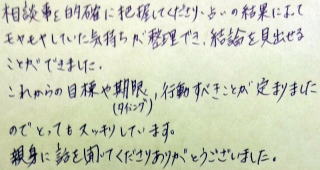 相談事を的確に把握してくださり、占いの結果によって
モヤモヤしていた気持ちが整理でき、結論を見出せる
ことができました。
これからの目標や期限、行動すべきことが定まりました
(タイミング)
のでとってもスッキリしています。
親身に話を聞いてくださりありがとうございました。